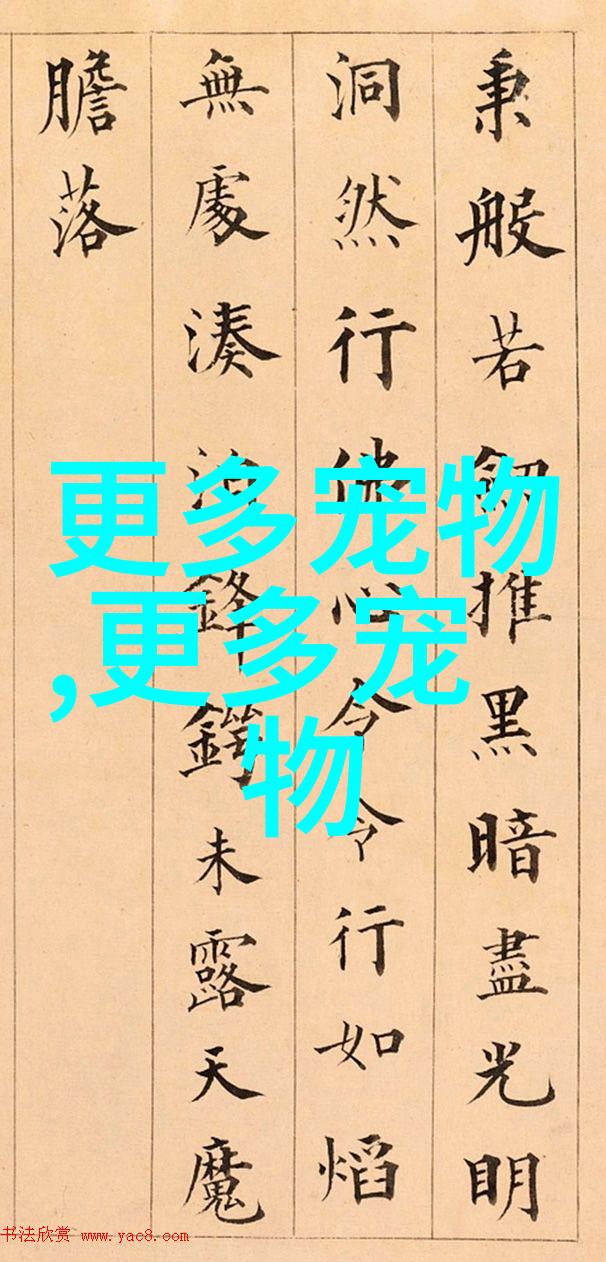 秉般若推黑暗盡光明
洞然行佛心令令行如熖
無處湊泊鋒鍔未露天魔
膽落
更多宠物
,更多宠
物
书法欣赏 www.yac8.com